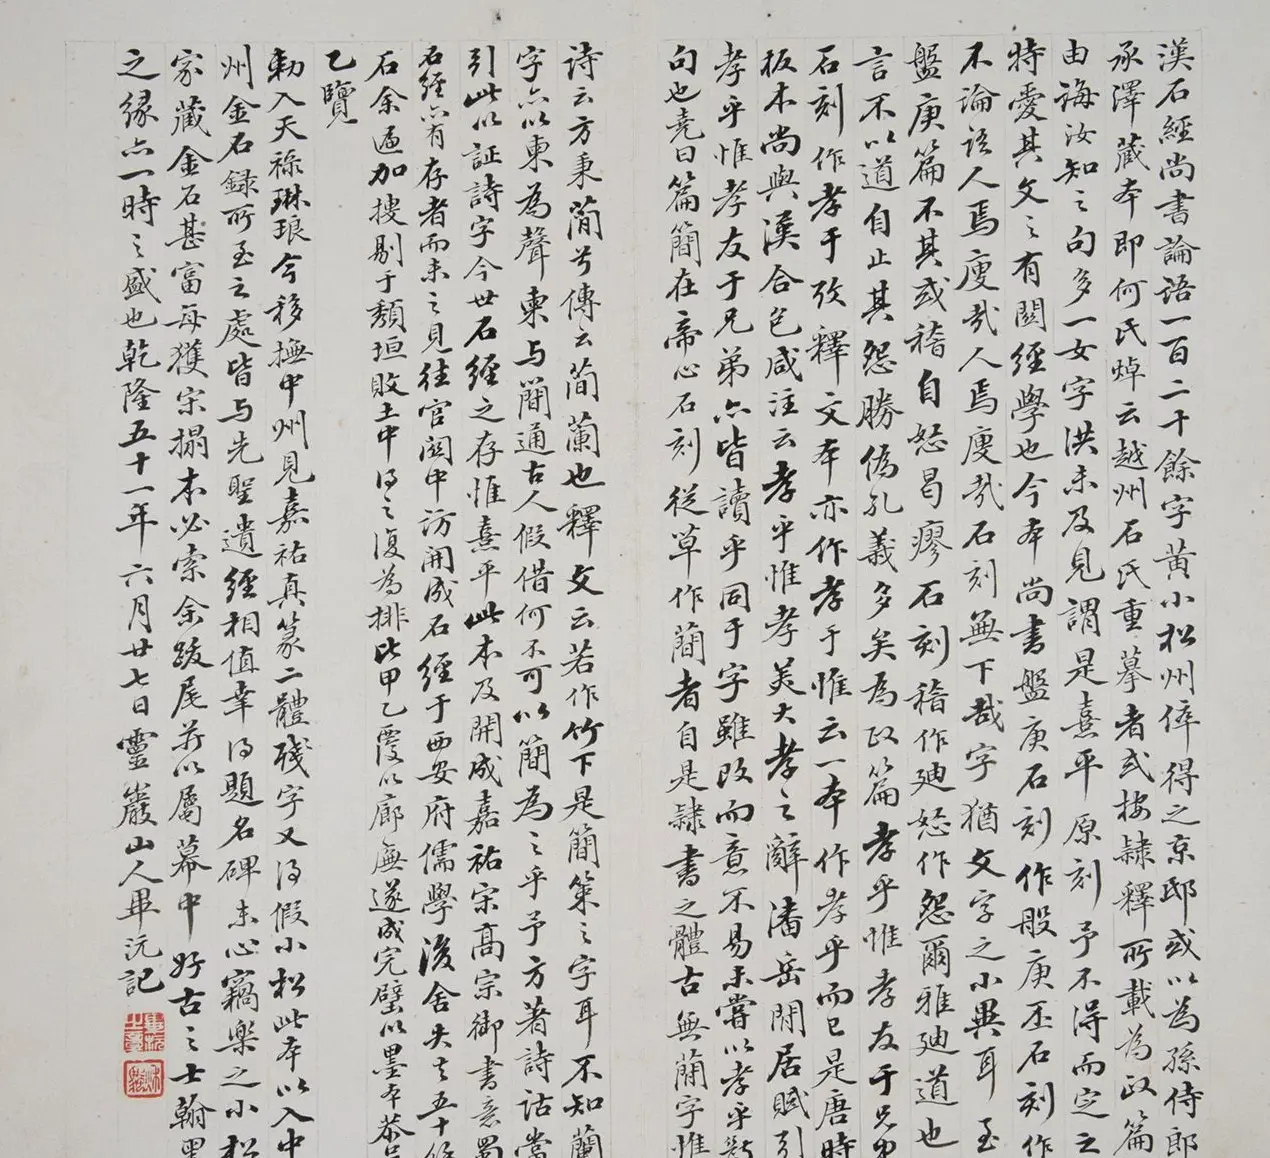 漢石經尚書論語一百二十餘字黃小松州倅得之京邸或以為孫侍郎
承澤藏本即何氏焯云越州石氏重摹者或按隸釋所載為政篇
由誨汝知之句多一女字洪未及見謂是熹平原刻予不得而定之
特愛其文之有關經學也今本尚書盤庚石刻作般庚丕石刻作
不論語人焉廋哉人焉廋哉石刻無下哉字猶文字之小異耳至
盤庚篇不其或稽自怒曷瘳石刻稽作迪怒作怨爾雅迪道也
言不以道自止其怨勝偽孔義多矣為政篇孝乎惟孝友于兄弟
石刻作孝于攷釋文本亦作孝于惟云一本作孝乎而已是唐時
板本尚與漢合包咸注云孝乎惟孝美大孝之辭潘岳閒居賦引
孝乎惟孝友于兄弟亦皆讀乎同于字雖改而意不易未嘗以孝乎斷
句也堯曰篇簡在帝心石刻從草作蕑者自是隸書之體古無蕑字惟
詩云方秉蕑兮傳云蕑蘭也釋文云若作竹下是簡策之字耳不知蕑
字亦以柬為聲柬与蕑通古人假借何不可以簡為之乎予方著詩詁當
引此以証詩字今世石經之存惟熹平此本及開成嘉祐宋高宗御書意蜀
石經亦有存者而未之見往官關中訪開成石經于西安府儒學後舍失去五十餘
石余適加搜剔于頹垣敗土中得之復為排比甲乙覆以廊廡遂成完璧以墨本恭呈
乙覽
勅入天祿琳琅今移撫中州見嘉祐真篆二體殘字又得假小松此本以入中
州金石錄所至之處皆与先聖遺經相值幸得題名碑末心竊樂之小松
家藏金石甚富每獲宋搨本必索余跋尾并以屬幕中好古之士翰墨
之緣亦一時之盛也乾隆五十一年六月廿七日靈巖山人畢沅記